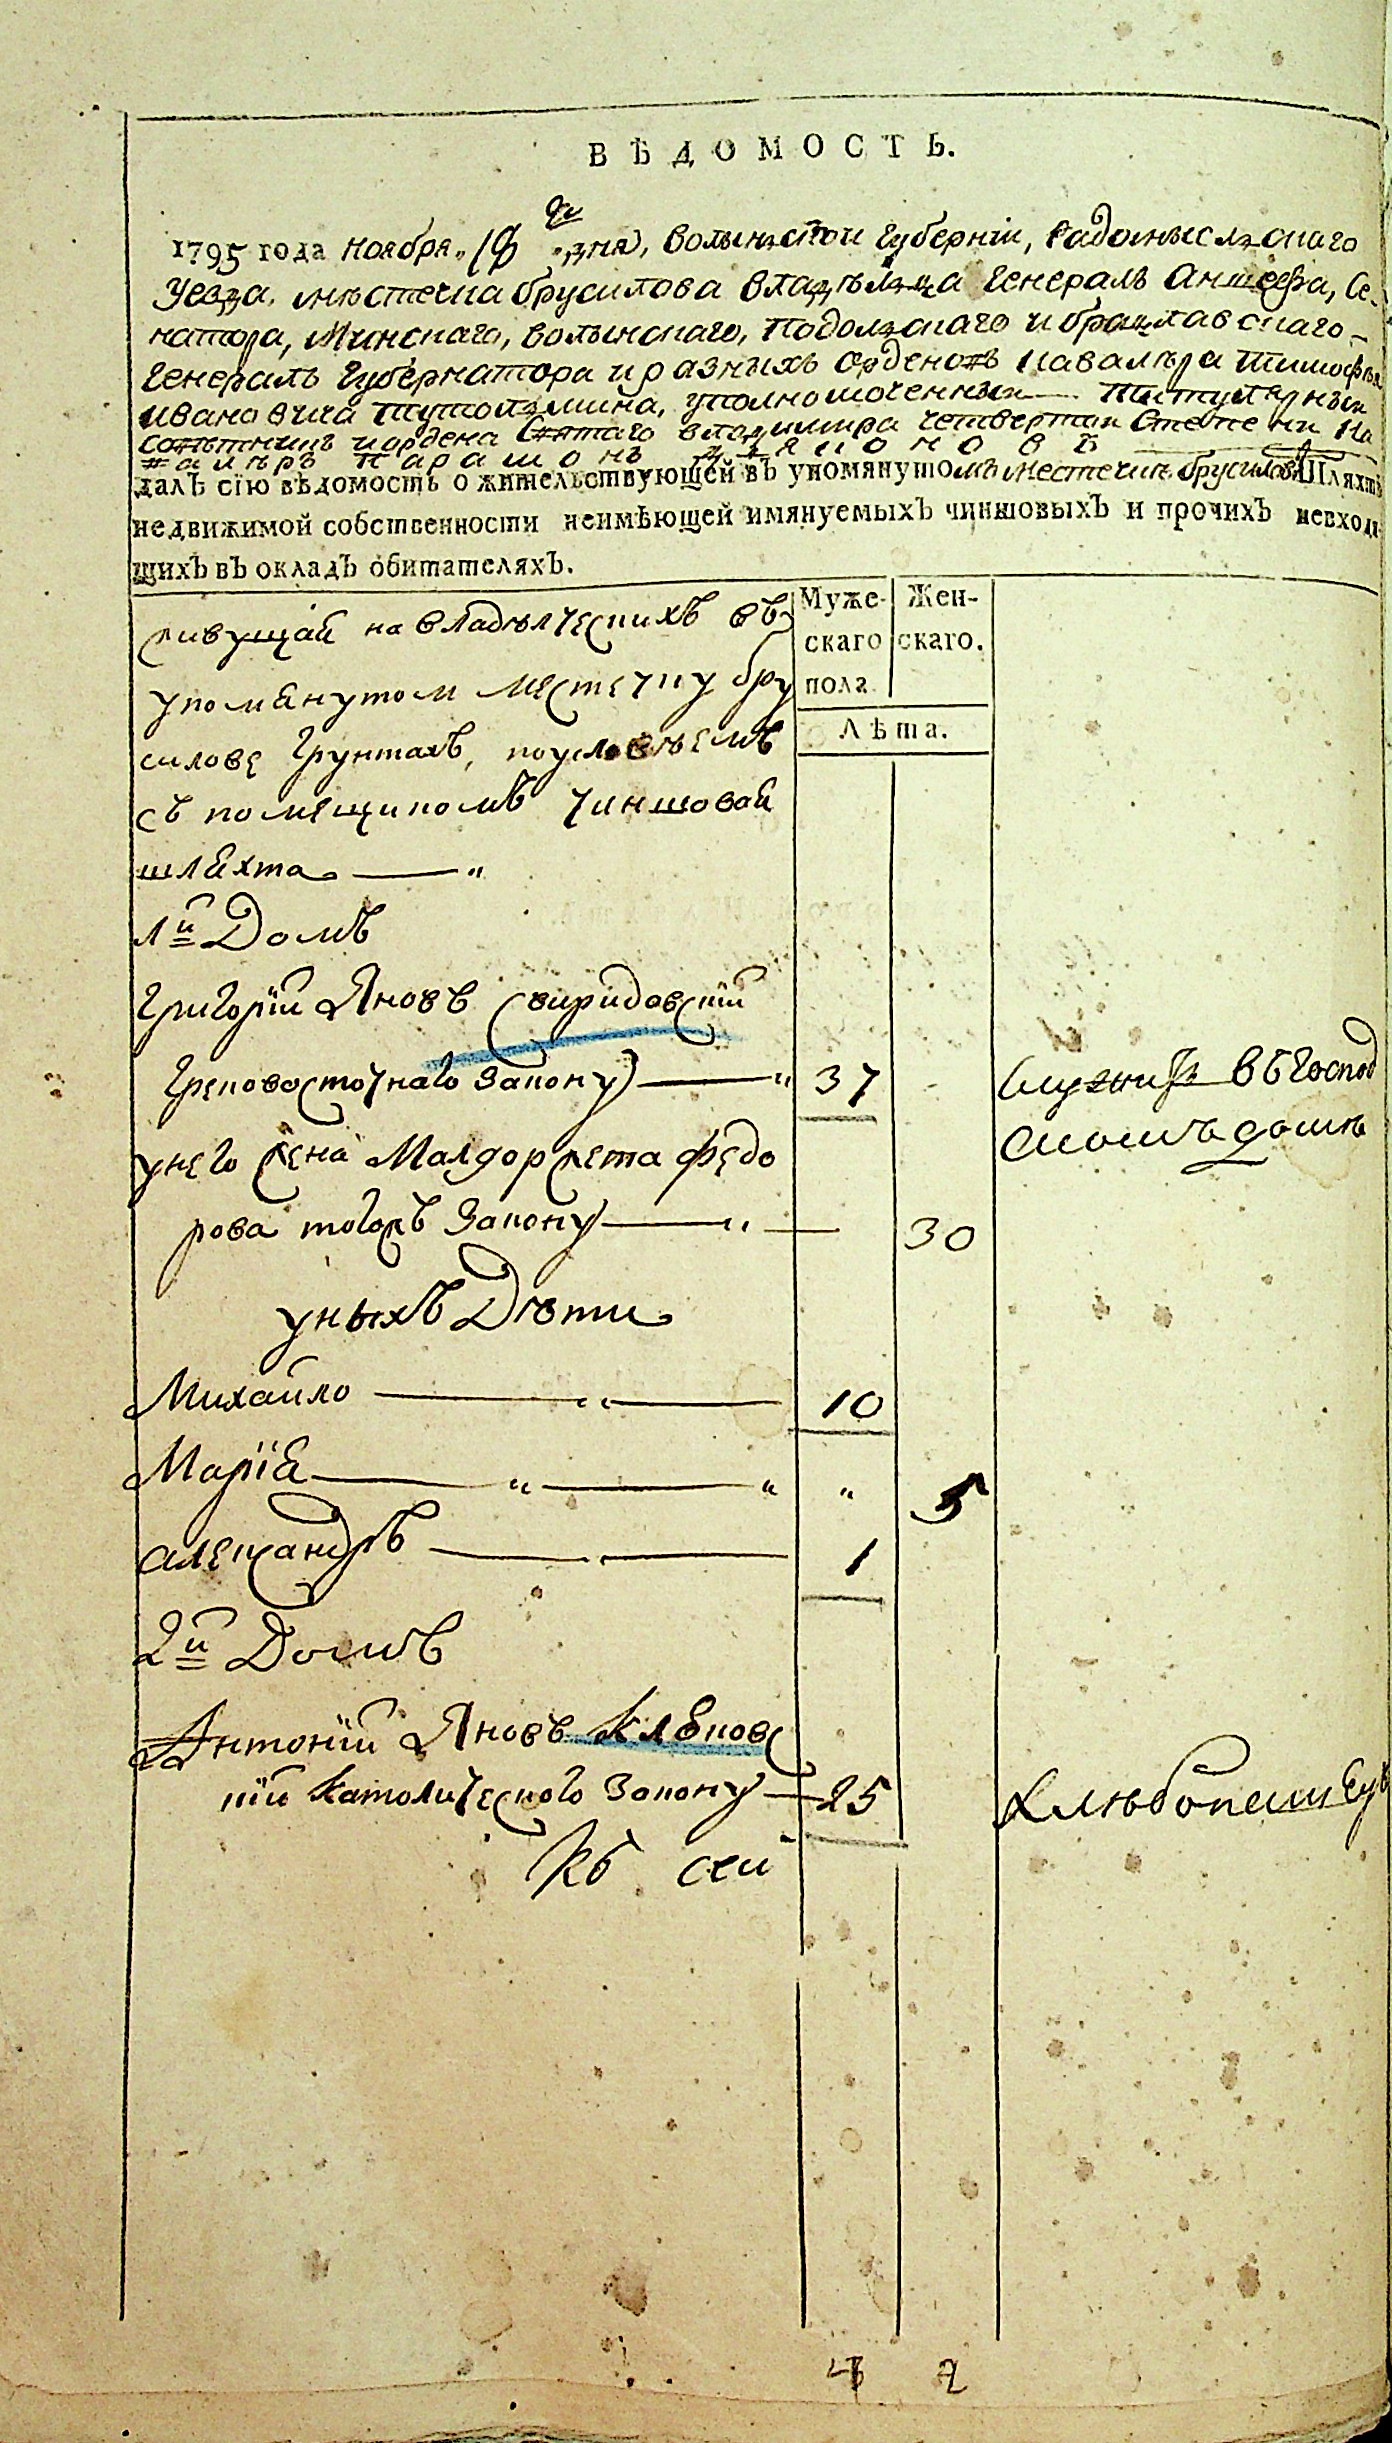 ВѢДОМОСТЬ.
1795 года ноября дня, волынской губерніи, Радомысльскаго
уезда. мѣстечка брусилова владѣльца Генералъ Аншефа, Се-
натора, Минскаго, волынскаго, Подольскаго и брацлавскаго
Генералъ Губернатора и разныхъ орденовъ Кавалѣра Тимофѣя
ивановича Тутолмина, уполномоченный Титулярный
совѣтникъ и ордена Святаго владимира четвертой Степени Ка-
валѣръ Парамонъ Дьяконовъ
далъ сію вѣдомость о жительствующей въ упомянутомъ местечкѣ брусиловѣ Шляхтѣ
недвижимой собственности неимѣющей имянуемыхъ чиншовыхъ и прочихъ невходя-
щихъ въ окладъ обитателяхъ.
Муже- Жен-
скаго скаго.
пола
Лѣта.
живущай на владѣлческихъ въ
упомянутом местечку бру
силове грунтахъ, поусловѣемъ
съ помещикомъ чиншовай
шляхта — "
1й Домъ
Григорій Яновъ Свиридовскій
Грековосточнаго Закону — " 37 служитъ въ Господ
скомъ доме
унего жена Малгоржета Федо
рова тогожъ Закону — " — 30
уныхъ Дѣти
Михайло — " — 10
Марія — " — " " 5
Александръ — 1
2й Домъ
Антоній Яновъ Кляновс
кій Католического Закону — 25 Хлѣбопашец
Къ сей
4 2